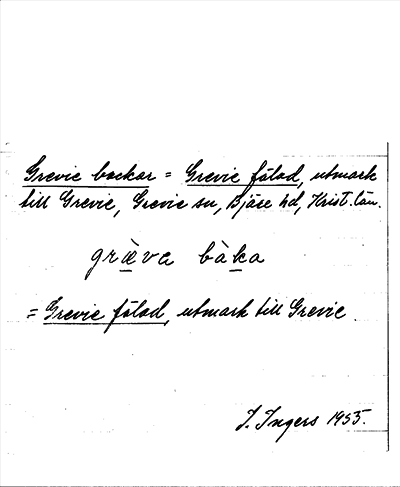 Grevie backar = Grevie fälad, utmark
till Grevie, Grevie sn, Bjäre hd, Krist. län.
grä̱va bà̱ka
= Grevie fälad, utmark till Grevie.
I. Ingers 1955.